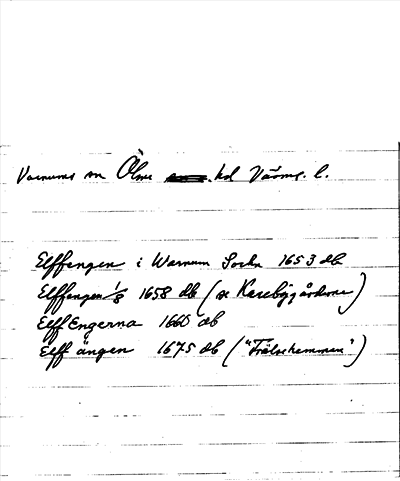 Varnums sn Ölme hd Värml. l.
Elffengen i Warnum Sockn 1653 db
Elffengen 1/8 1658 db (se Karebygårdarne)
Elff Engerna 1660 db
Elff ängen 1675 db ("Frälsehemman")